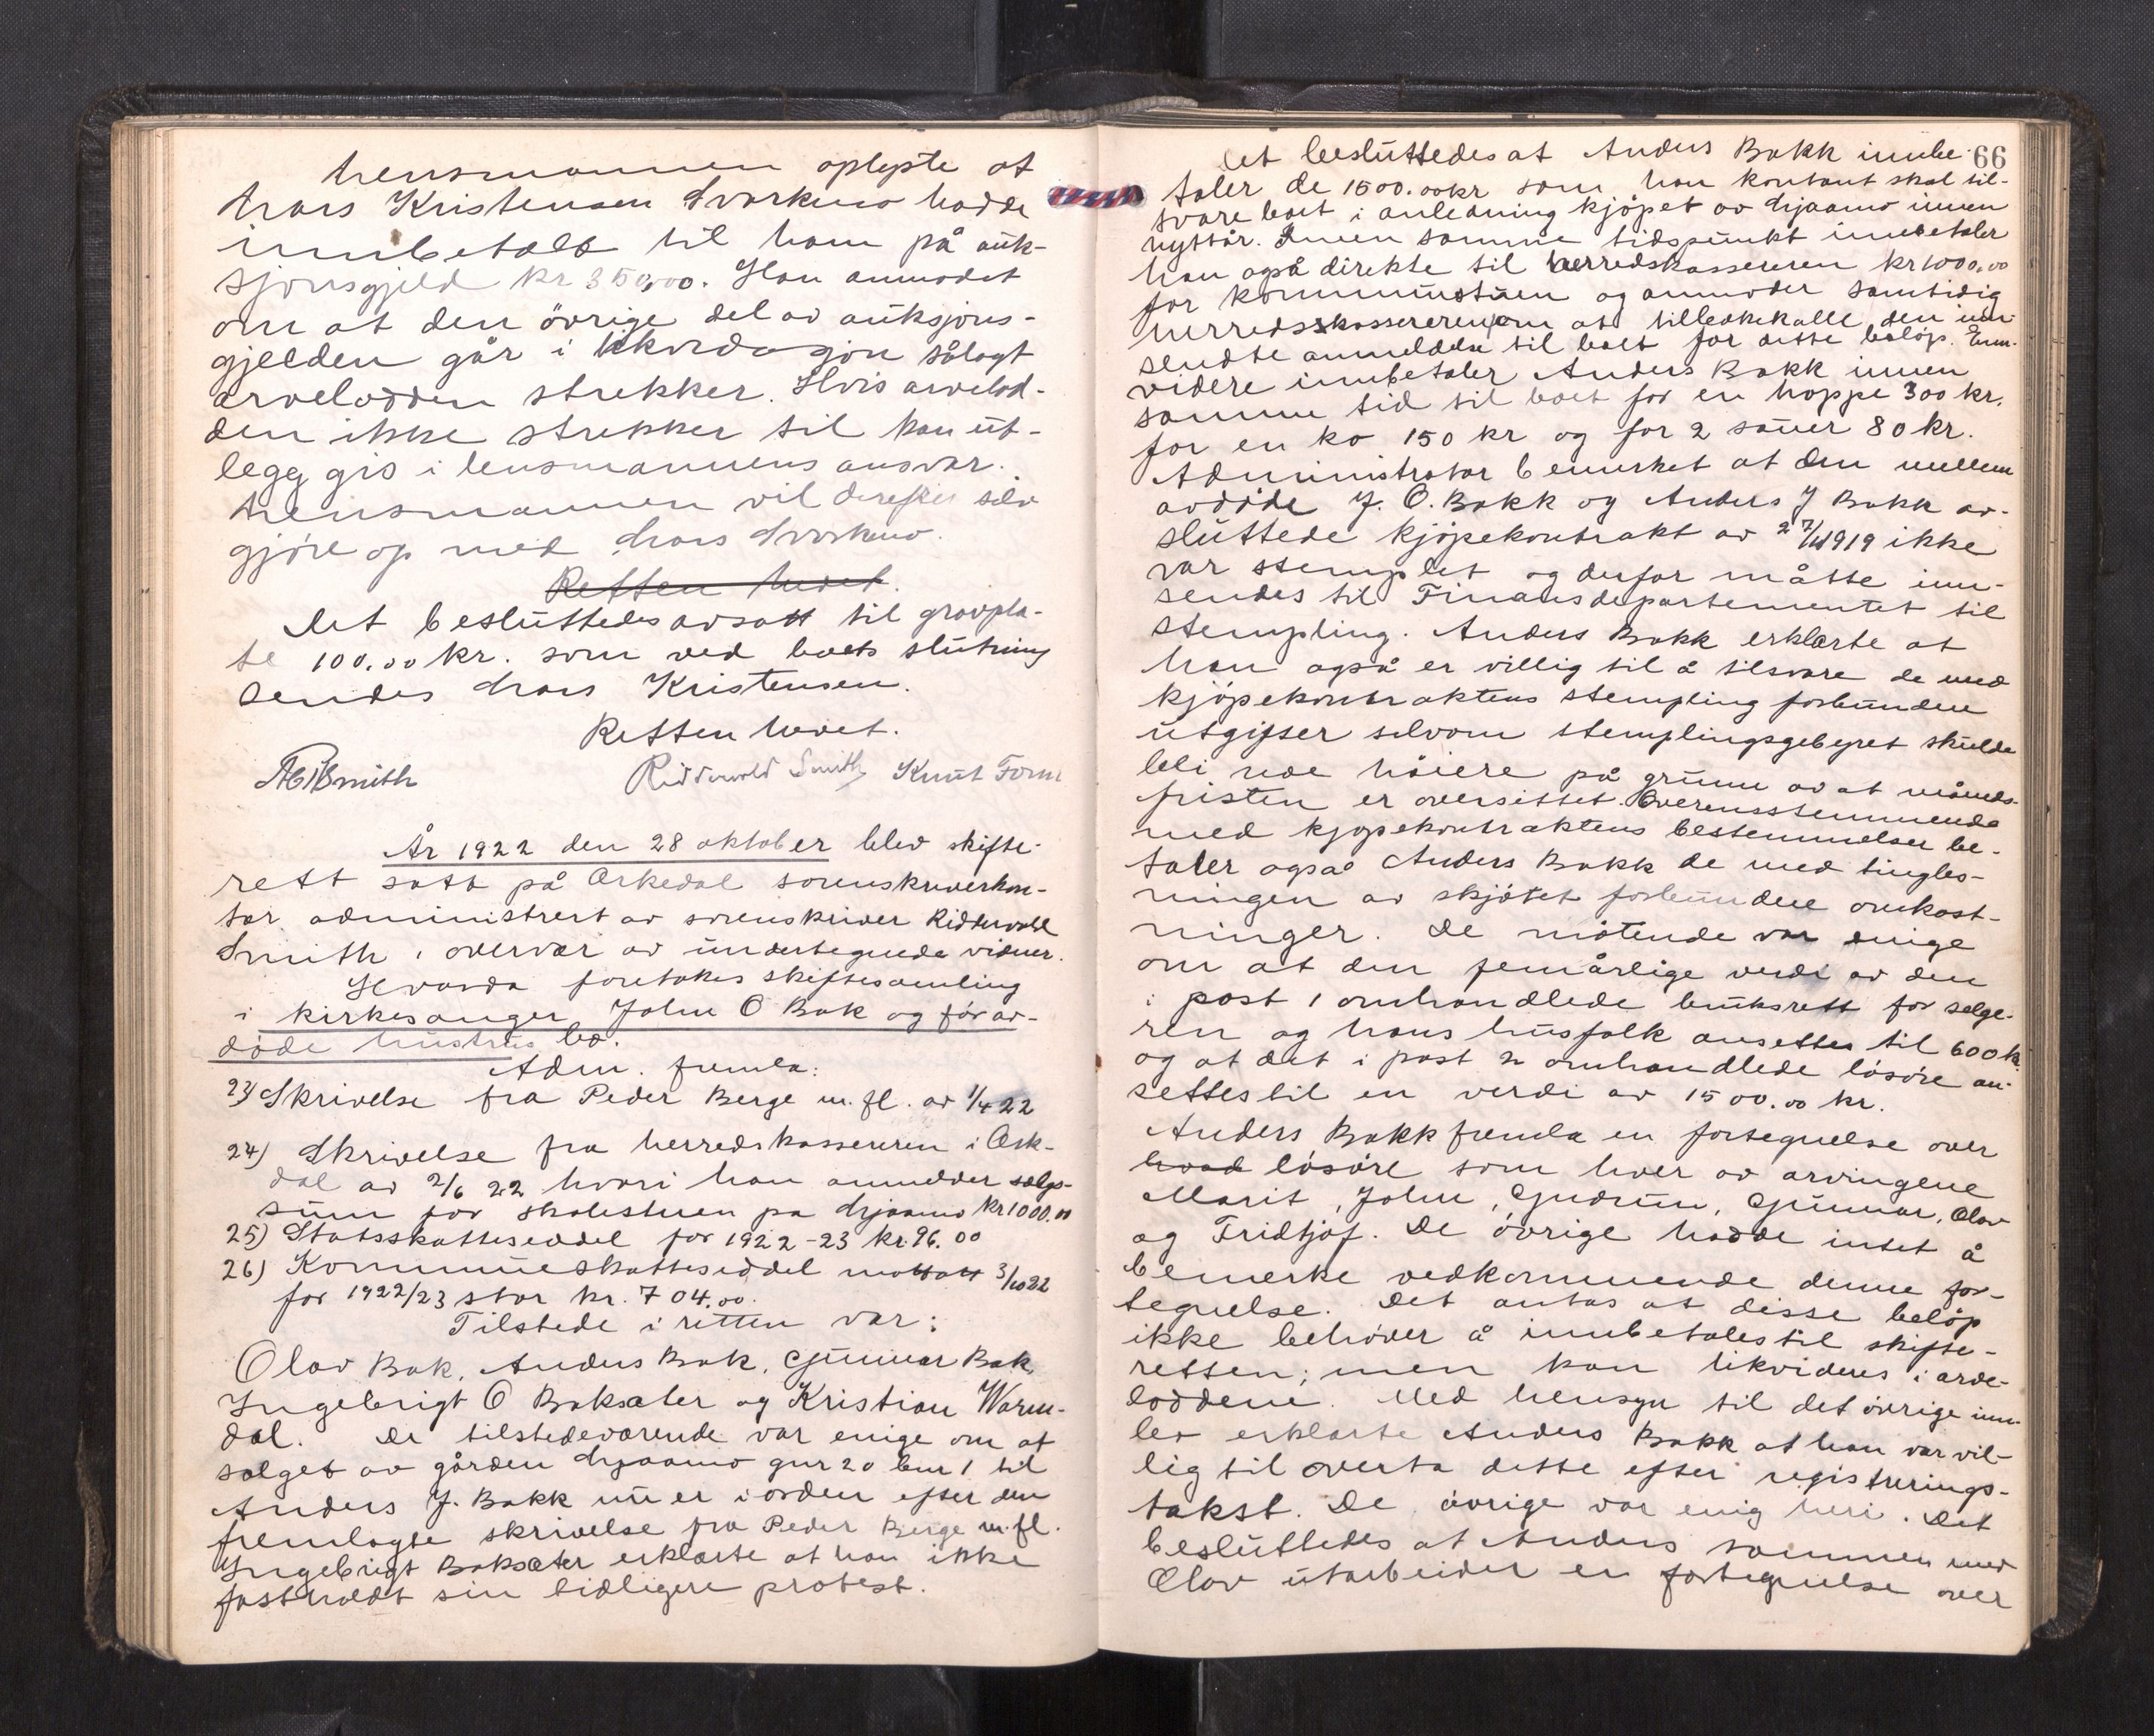 Lensmannen oplyste at
Lars Kristensen Svorkmo hadde
innbetalt til ham på auk-
sjonsgjeld kr 350,00. Han anmodet
om at den övrige del av auksjons-
gjelden går i likvidasjon sålagt
arvelodden strekker. Hvis arvelod-
den ikke strekker til kan ut-
legg gis i lensmannens ansvar.
Lensmannen vil derefter selv
gjöre op med Lars Svorkmo.
Retten hevet.
Det besluttedes avsatt til gravpla-
te 100.00 kr. som ved boets slutning
sendes Lars Kristensen.
Retten hevet.
Ridderwold Smith Knut
År 1922 den 28 oktober blev skifte-
rett satt på Orkedal sorenskriverkon-
tor administrert av sorenskriver Ridderwold
Smith i overvær av undertegnede vidner.
Hvorda foretokes skiftesamling
i kirkesanger John O Bak og før av-
döde hustrus bo.
Adm. fremla:
23) Skrivelse fra Peder Berge m. fl. av 1/4 22
24) Skrivelse fra herredskassereren i Ork-
dal av 2/6 22 hvori han anmelder salgs-
sum for skolestuen pa Ljaamo kr 1000.00
25) Statsskatteseddel for 1922-23 kr. 96.00
26) Kommuneskatteseddel mottatt 3/10 22
for 1922/23 stor kr. 704.00.
Tilstede i retten var:
Olav Bak, Anders Bak, Gunnar Bak,
Ingebrigt O Baksæter og Kristian Warm-
dal. De tilstedeværende var enige om at
salget av gården Ljaamo gnr 20 bnr 1 til
Anders J. Bakk nu er i orden efter den
fremlagte skrivelse fra Peder Berge m. fl.
Ingebrigt Baksæter erklærte at han ikke
fastholdt sin tidligere protest.
66
Det besluttedes at Anders Bakk innbe-
taler de 1500.00 kr som han kontant skal til-
svare boet i anledning kjöpet av Ljaamo innen
nyttår. Innen samme tidspunkt innbetaler
han også direkte til herredskassereren kr 1000.00
for kommunestuen og anmoder samtidig
herredsskassereren om at tilbakekalle den inn-
sendte anmeldelse til boet for dette belöp. Enn-
videre innbetaler Anders Bakk innen
samme tid til boet for en hoppe 300 kr.
for en ko 150 kr og for 2 sauer 80 kr.
Administrator bemerket at den mellem
avdöde J. O. Bakk og Anders J Bakk av-
sluttede kjöpekontrakt av 1919 ikke
var stemplet og derfor måtte inn-
sendes til Finansdepartementet til
stempling. Anders Bakk erklærte at
han også er villig til å tilsvare de med
kjöpekontraktens stempling forbundne
utgifter selvom stemplingsgebyret skulde
bli noe höiere på grunn av at måneds-
fristen er oversittet. Overensstemmende
med kjöpekontraktens bestemmelser be-
taler også Anders Bakk de med tingles-
ningen av skjötet forbundne omkost-
ninger. De mötende var enige
om at den femårlige verdi av den
i post 1 omhandlede bruksrett for selge-
ren og hans husfolk ansettes til 600 kr
og at det i post 2 omhandlede lösöre an-
settes til en verdi av 1500.00 kr.
Anders Bakk fremla en fortegnelse over
hvad lösöre som hver av arvingene
Marit, John, Gudrun, Gunnar, Olav
og Fridtjof. De övrige hadde intet å
bemerke vedkommende denne for-
tegnelse. Det antas at disse belöp
ikke behöver å innbetales til skifte-
retten; men kan likvideres i arve-
loddene. Med hensyn til det övrige inn-
bo erklærte Anders Bakk at han var vil-
lig til overta dette efter registrerings-
takst. De övrige var enig heri. Det
besluttedes at Anders sammen med
Olav utarbeider en fortegnelse over